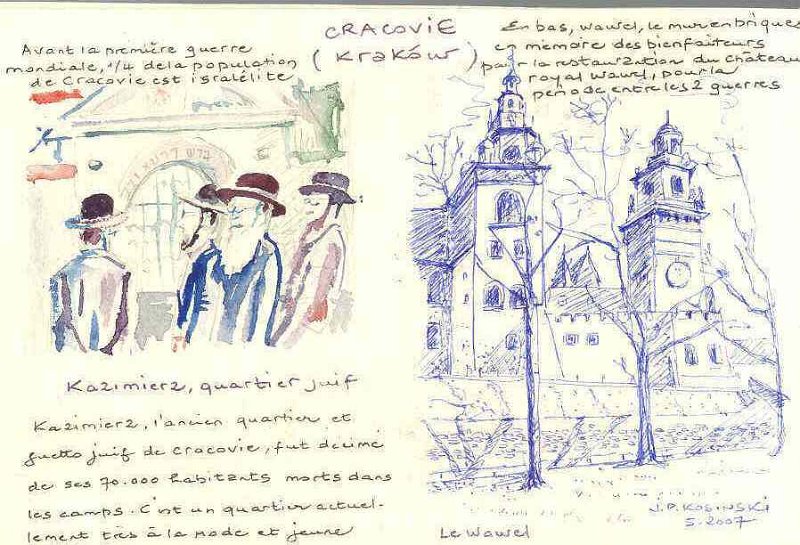 CRACOVIE
(Kraków)
Avant la première guerre
mondiale, 1/4 de la population
de Cracovie est isralélite
En bas, wawel, le mur en briques
en mémoire des bienfaiteurs
pour la restauration du château
royal wawel, pour la
période entre les 2 guerres
Kazimierz, quartier juif
Kazimierz, l'ancien quartier et
guetto juif de cracovie, fut décimé
de ses 70.000 habitants morts dans
les camps. C'est un quartier actuel-
lement très à la mode et jeune
J.P. KOSINSKI
5.2007
Le Wawel